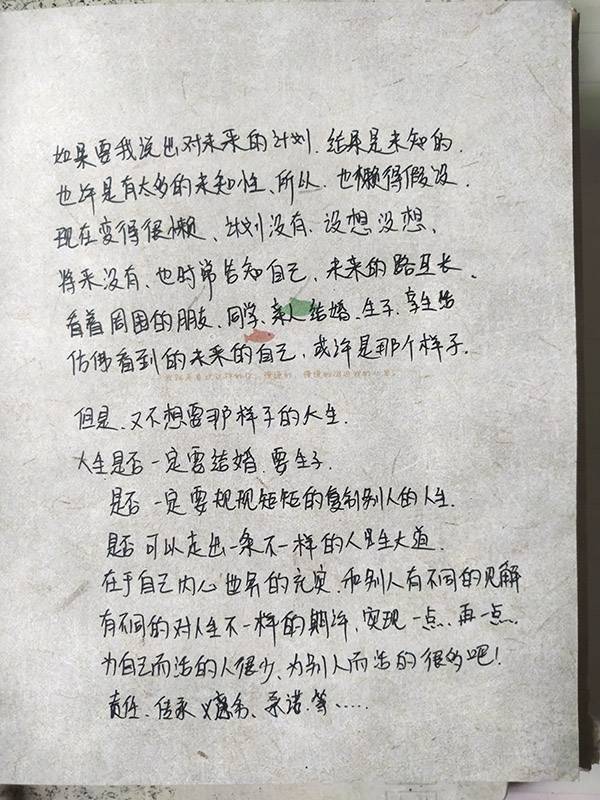 如果要我说出对未来的计划、结果是未知的、
也许是有太多的未知性、所以、也懒得假设、
现在变得很懒、计划没有、设想没想、
将来没有、也时常告知自己、未来的路且长、
看着周围的朋友、同学、亲人结婚、生子、享生活
仿佛看到的未来的自己、或许是那个样子、
但是、又不想要那样子的人生、
人生是否一定要结婚、要生子、
是否一定要规规矩矩的复制别人的人生、
是否可以走出一条不一样的人生大道、
在于自己内心世界的充实、和别人有不同的见解
有不同的对人生不一样的期许、实现一点、再一点、
为自己而活的人很少、为别人而活的很多吧！
责任、传承、义务、承诺、等……